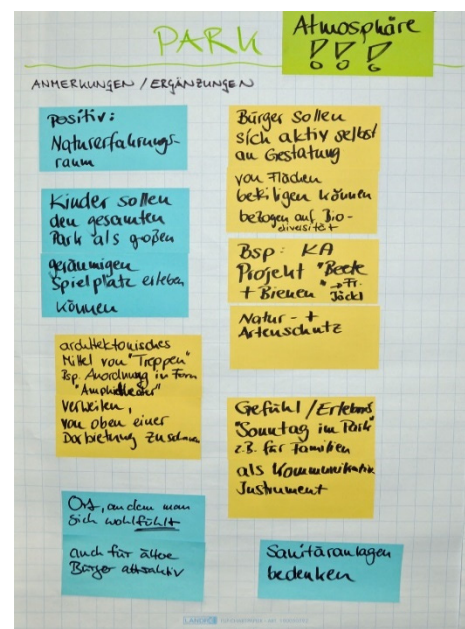 PARK
Atmosphäre
!!!
ANMERKUNGEN / ERGÄNZUNGEN
Positiv:
Naturerfahrungs-
raum
Kinder sollen
den gesamten
Park als großen
geräumigen
Spielplatz erleben
können
architektonisches
Mittel von "Treppen"
Bsp. Anordnung in Form
"Amphitheater"
verweilen,
von oben einer
Darbietung zuschauen
Ort, an dem man
sich wohlfühlt
auch für ältere
Bürger attraktiv
Bürger sollen
sich aktiv selbst
an Gestatung
von Flächen
beteiligen können
bezogen auf Bio-
diversität
Bsp: KA
Projekt "Beete
+ Bienen" → Fr.
Jäckl
Natur- +
Artenschutz
Gefühl / Erlebnis
"Sonntag im Park"
z.B. für Familien
als Kommunikativ.
Instrument
Sanitäranlagen
bedenken